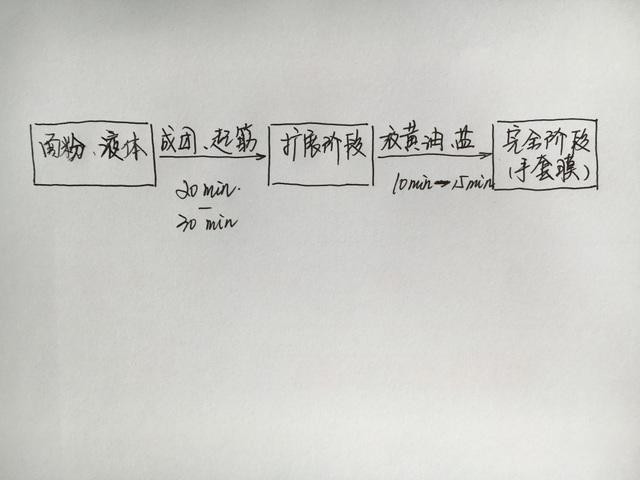 面粉、液体
成团、起筋
20min.
—
30min
扩展阶段
放黄油、盐
10min→15min
完全阶段
(手套膜)